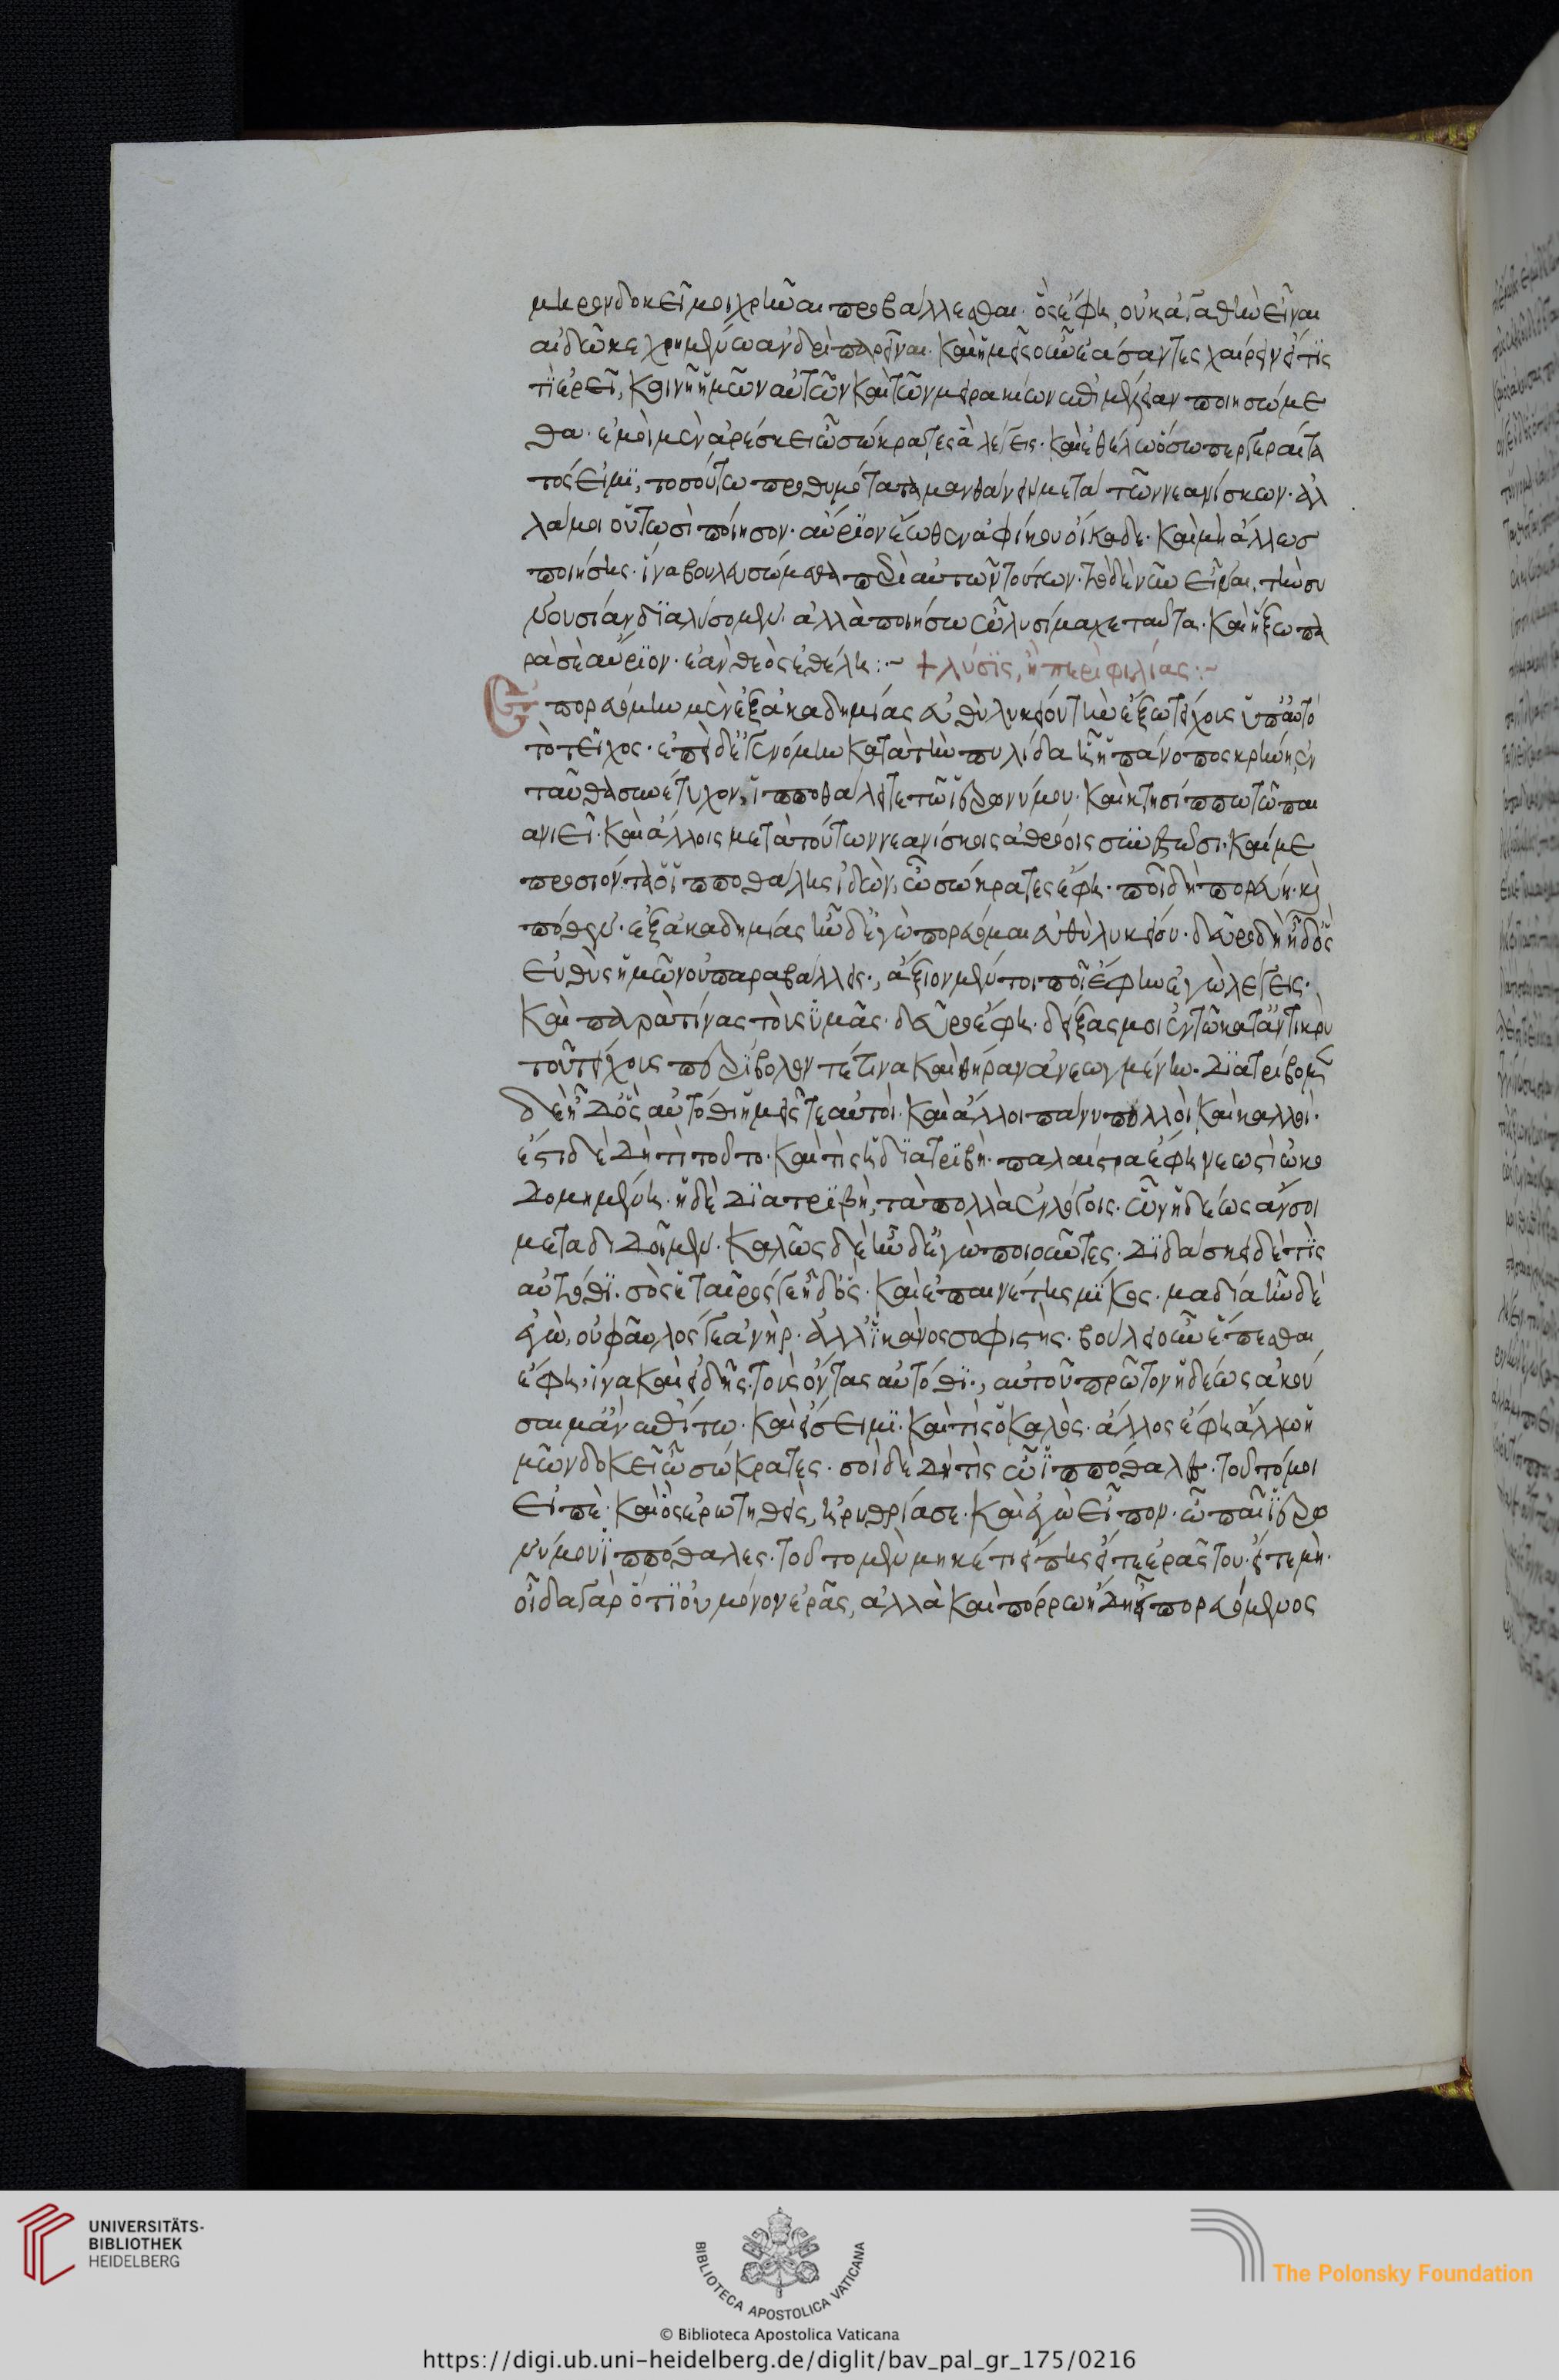 μηρον δοκεῖ μοι χρῆναι προβάλλεσθαι. ὃς ἔφη, οὐκ ἀγαθὴν εἶναι
αἰδῶ κεχρημένω ἀνδρὶ παρεῖναι. καὶ ἡμεῖς οὖν ἐάσαντες χαίρειν εἴ τίς
τι ἐρεῖ, κοινῇ ἡμῶν αὐτῶν καὶ τῶν μειρακίων ἐπιμέλειαν ποιησώμε
θα. ἐμοὶ μὲν ἀρέσκει ὦ σώκρατες ἃ λέγεις. καὶ ἐθέλω ὅσω περ γεραίτα
τός εἰμϊ, τοσούτω προθυμότατα μανθάνειν μετὰ τῶν νεανίσκων. ἀλ
λά μοι οὕτωσὶ ποίησον. αὔριον ἕωθεν ἀφίκου οἴκαδε. καὶ μὴ ἄλλωσ
ποιήσης. ἵνα βουλευσώμεθα περὶ αὐτῶν τούτων. τὸ δὲ νῦν εἶναι, τὴν συ
νουσίαν διαλύσομεν. ἀλλὰ ποιήσω ὦ λυσίμαχε ταῦτα. καὶ ἥξω πα
ρὰ σὲ αὔριον. ἐὰν θεὸς ἐθέλη :~ + λύσϊς, ἢ περὶ φιλίας :~
Επορευόμην μὲν ἐξ ἀκαδημίας εὐθὺ λυκείου τὴν ἔξω τείχους ὑπ' αὐτὸ
τὸ τεῖχος. ἐπεὶ δ' ἐγενόμην κατὰ τὴν πυλίδα ᾗ ἡ πάνοπος κρήνη, ἐν
ταῦθα συνέτυχον, ἱπποθάλει τε τῶ ἱερωνύμου. καὶ κτησίππω τῶ παι
ανιεῖ. καὶ ἄλλοις μετὰ τούτων νεανίσκοις ἀθρόοις συνεστῶσι. καί με
προσιόντα ὁ ἱπποθάλης ἰδὼν, ὦ σώκρατες ἔφη. ποῖ δὴ πορεύη. καὶ
πόθεν. ἐξ ἀκαδημίας ἦν δ' ἐγὼ πορεύομαι εὐθὺ λυκείου. δεῦρο δὴ ἦ δ' ὃς
εὐθὺς ἡμῶν οὐ παραβάλλεις., ἄξιον μέντοι ποῖ ἔφην ἐγὼ λέγεις.
καὶ παρὰ τίνας τοὺς ὑμᾶς. δεῦρο ἔφη. δείξας μοι ἐν τῶ καταντικρὺ
τοῦ τείχους περίβολόν τέ τινα καὶ θύραν ἀνεωγμένην. διατρίβομεν
δὲ ἦ δ' ὃς αὐτόθι ἡμεῖς τε αὐτοὶ. καὶ ἄλλοι πάνυ πολλοὶ καὶ καλοὶ.
ἔστι δὲ δὴ τί τοῦτο. καὶ τίς ἡ διατριβὴ. παλαίστρα ἔφη νεωστὶ ὠκο
δομημένη. ἡ δὲ διατριβὴ, τὰ πολλὰ ἐν λόγοις. ὧν ἡδέως ἄν σοι
μεταδιδοῖμεν. καλῶς δὲ ἦν δ' ἐγὼ ποιοῦντες. διδάσκει δὲ τίς
αὐτόθϊ. σὸς ἑταῖρός γε ἦ δ' ὃς. καὶ ἐπαινέτης μίκος. μὰ δία ἦν δὲ
ἐγὼ, οὐ φαῦλός γε ἀνὴρ. ἀλλ' ἱκανὸς σοφιστὴς. βούλει οὖν ἕπεσθαι
ἔφη. ἵνα καὶ εἰδῇς τοὺς ὄντας αὐτόθϊ., αὐτοῦ πρῶτον ἡδέως ἀκού
σαιμ' ἂν ἐπὶ τῶ. καὶ εἴσειμϊ. καὶ τίς ὁ καλός. ἄλλος ἔφη ἄλλω ἡ
μῶν δοκεῖ ὦ σώκρατες. σοὶ δὲ δὴ τίς ὦ ἱππόθαλες. τοῦτό μοι
εἰπὲ. καὶ ὃς ἐρωτηθεὶς, ἠρυθρίασε. καὶ ἐγὼ εἶπον. ὦ παῖ ἱερω
νύμου ἱππόθαλες. τοῦτο μὲν μηκέτι εἴπης εἴτε ἐρᾶς του. εἴτε μὴ.
οἶδα γὰρ ὅτι οὐ μόνον ἐρᾶς, ἀλλὰ καὶ πόρρω ἤδη εἶ πορευόμενος
UNIVERSITÄTS-
BIBLIOTHEK
HEIDELBERG
BIBLIOTECA APOSTOLICA VATICANA
The Polonsky Foundation
© Biblioteca Apostolica Vaticana
https://digi.ub.uni-heidelberg.de/diglit/bav_pal_gr_175/0216